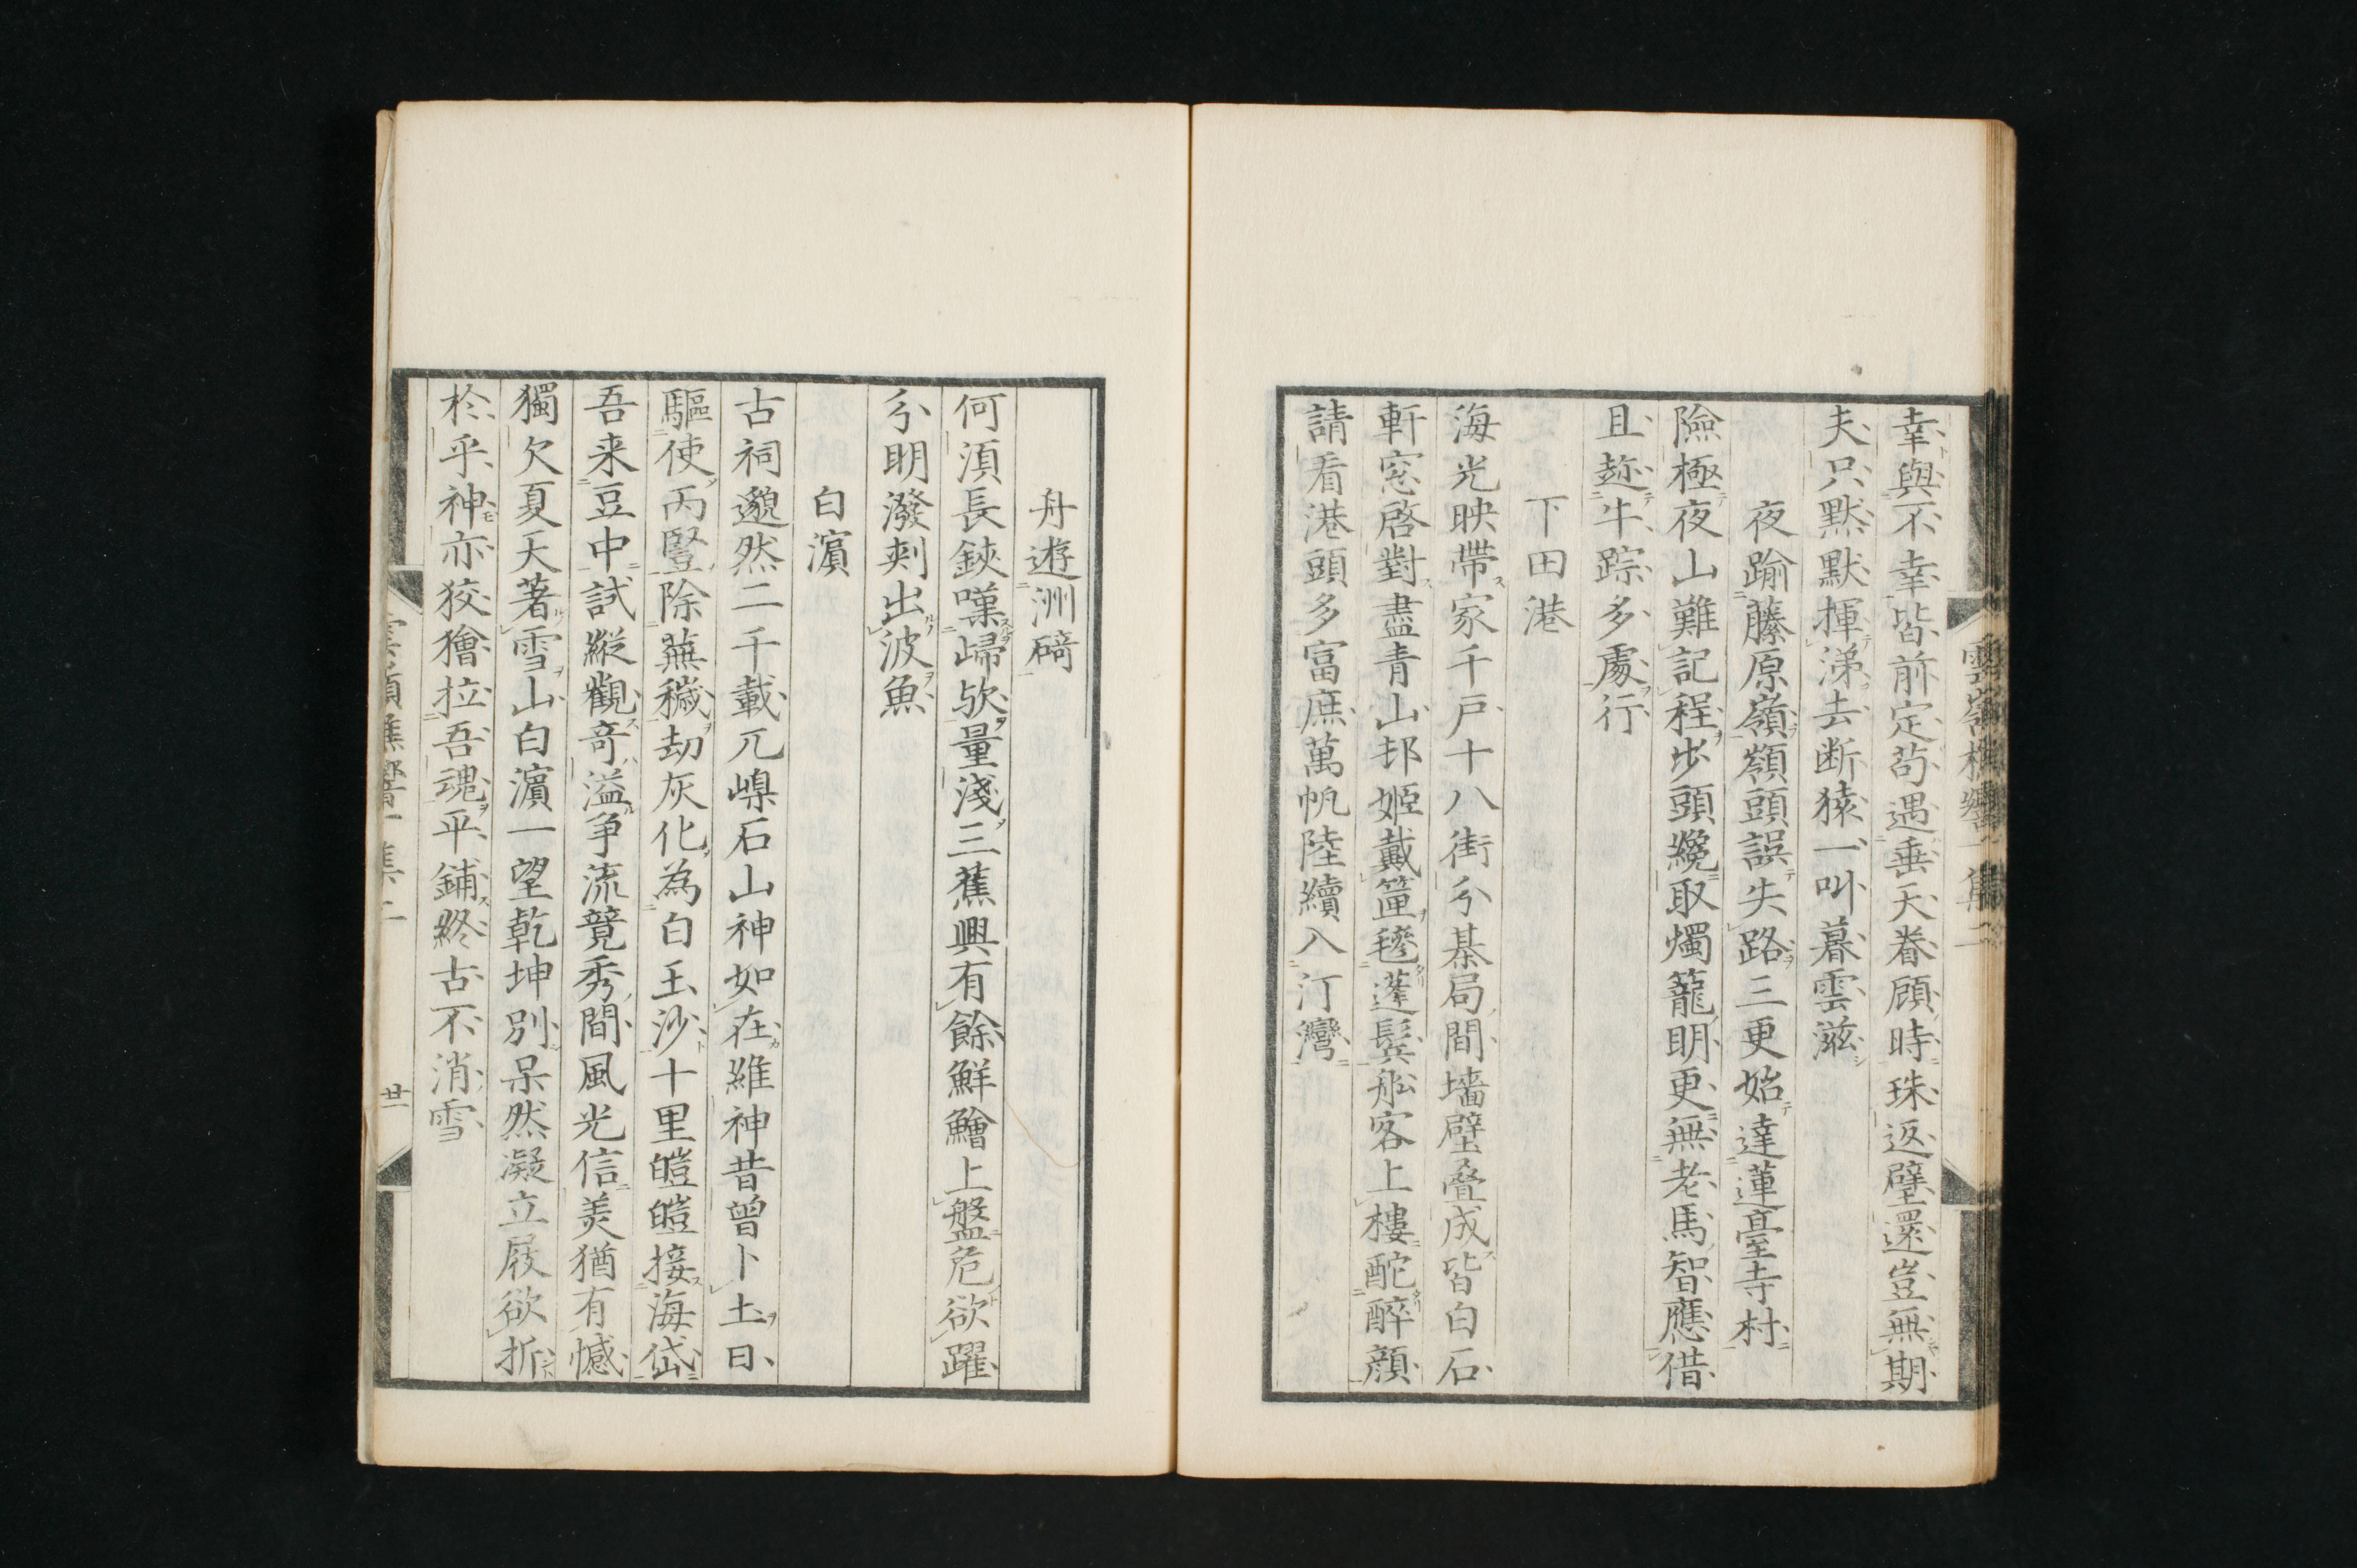 幸與不幸皆前定苟遇垂天眷顧時珠返璧還豈無期
夫只默默揮涕去断猿一叫暮雲滋
夜踰藤原嶺嶺頭誤失路三更始達蓮臺寺村
險極夜山難記程步頭纔取燭籠明更無老馬智應借
且趂牛踪多處行
下田港
海光映帶家千戸十八街分棊局間墻壁疊成皆白石
軒窓啓對盡青山邨姬戴筐毶蓬鬂舩客上樓酡醉顔
請看港頭多富庶萬帆陸續入汀灣
舟遊洲碕
何須長鋏嘆歸欤量淺三蕉興有餘鮮鱠上盤危欲躍
分明潑剌出波魚
白濵
古祠邈然二千載兀嵲石山神如在維神昔曾卜土日
驅使丙豎除蕪穢劫灰化為白玉沙十里皚皚接海岱
吾来豆中試縱觀奇溢争流競秀間風光信美猶有憾
獨欠夏天著雪山白濵一望乾坤別呆然凝立屐欲折
於乎神亦狡獪拉吾魂平鋪終古不消雪
樵響一集二
廿一